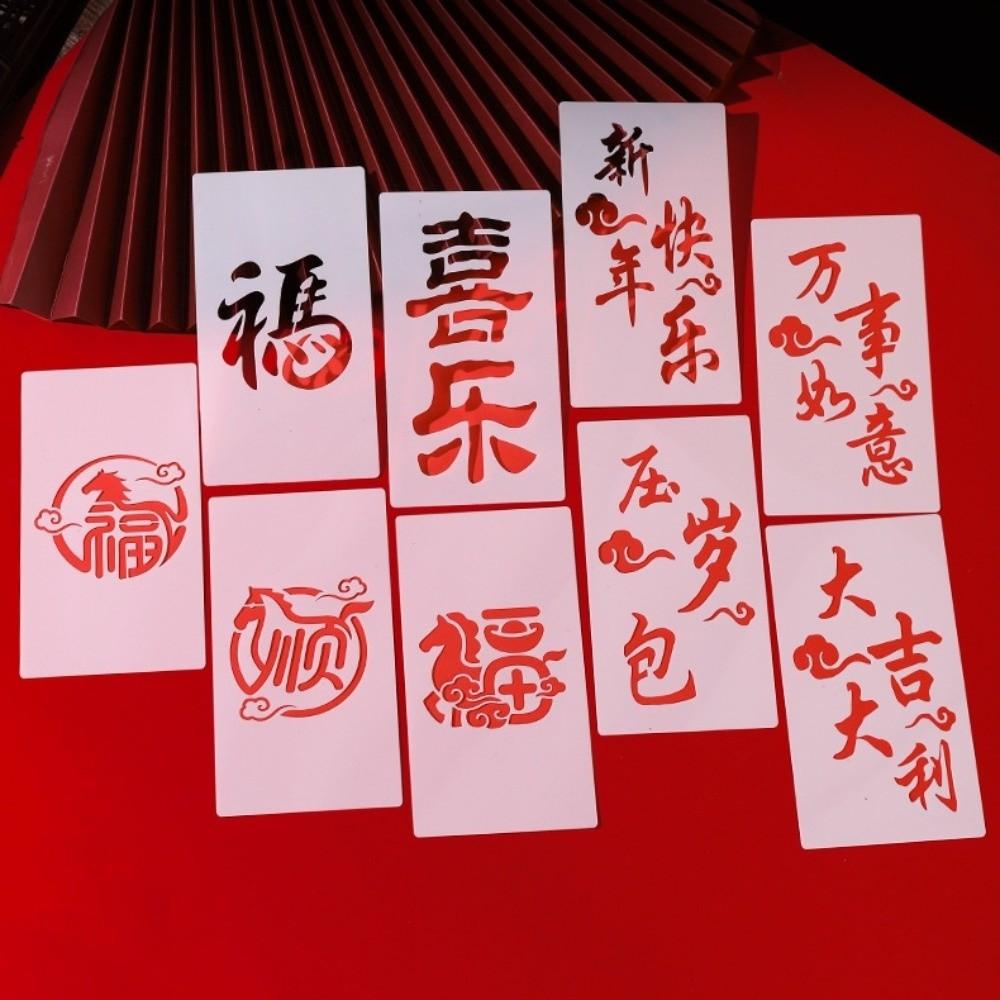 禡
喜乐
新年
快乐
万事
如意
福
顺
福
压岁
包
大吉
大利